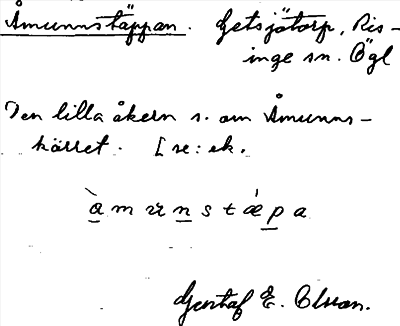 Åmunnstäppan. Getsjötorp, Ris-
inge sn. Ögl
Den lilla åkern s. om Åmunns-
kärret. [se: ek.
Gustaf E. Olsson.